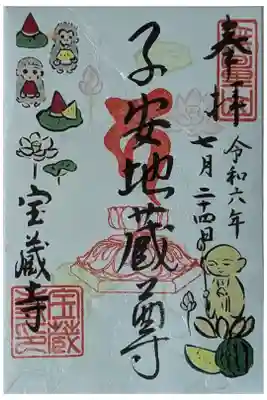 奉拝
令和六年
七月二十四日
子安地蔵尊
宝蔵寺